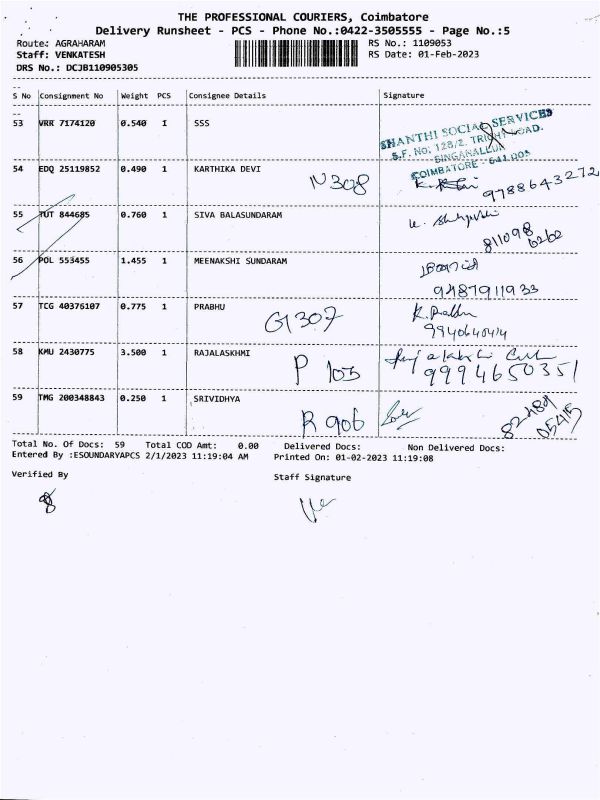 THE PROFESSIONAL COURIERS, Coimbatore
Delivery Runsheet - PCS - Phone No.:0422-3505555 - Page No.:5
Route: AGRAHARAM
RS No.: 1109053
Staff: VENKATESH
RS Date: 01-Feb-2023
DRS No.: DCJB110905305
S No Consignment No Weight PCS Consignee Details Signature
53 VRR 7174120 0.540 1 SSS
SHANTHI SOCIAL SERVICES
S.F. NO: 128/2, TRICHY ROAD.
SINGANALLUR
COIMBATORE - 641 005
54 EDQ 25119852 0.490 1 KARTHIKA DEVI
N 308
9788643272
55 TUT 844685 0.760 1 SIVA BALASUNDARAM
811098
6262
56 POL 553455 1.455 1 MEENAKSHI SUNDARAM
9487911933
57 TCG 40376107 0.775 1 PRABHU
G1307
K. Prabhu
58 KMU 2430775 3.500 1 RAJALASKHMI
P 103
9994650351
59 TMG 200348843 0.250 1 SRIVIDHYA
R 906
82489
05415
Total No. Of Docs: 59 Total COD Amt: 0.00 Delivered Docs: Non Delivered Docs:
Entered By :ESOUNDARYAPCS 2/1/2023 11:19:04 AM Printed On: 01-02-2023 11:19:08
Verified By
Staff Signature